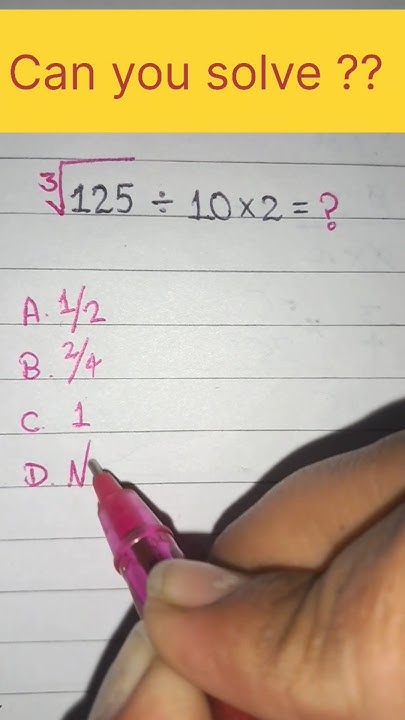 Can you solve ??
∛125 ÷ 10 × 2 = ?
A. 1/2
B. 2/4
C. 1
D. N